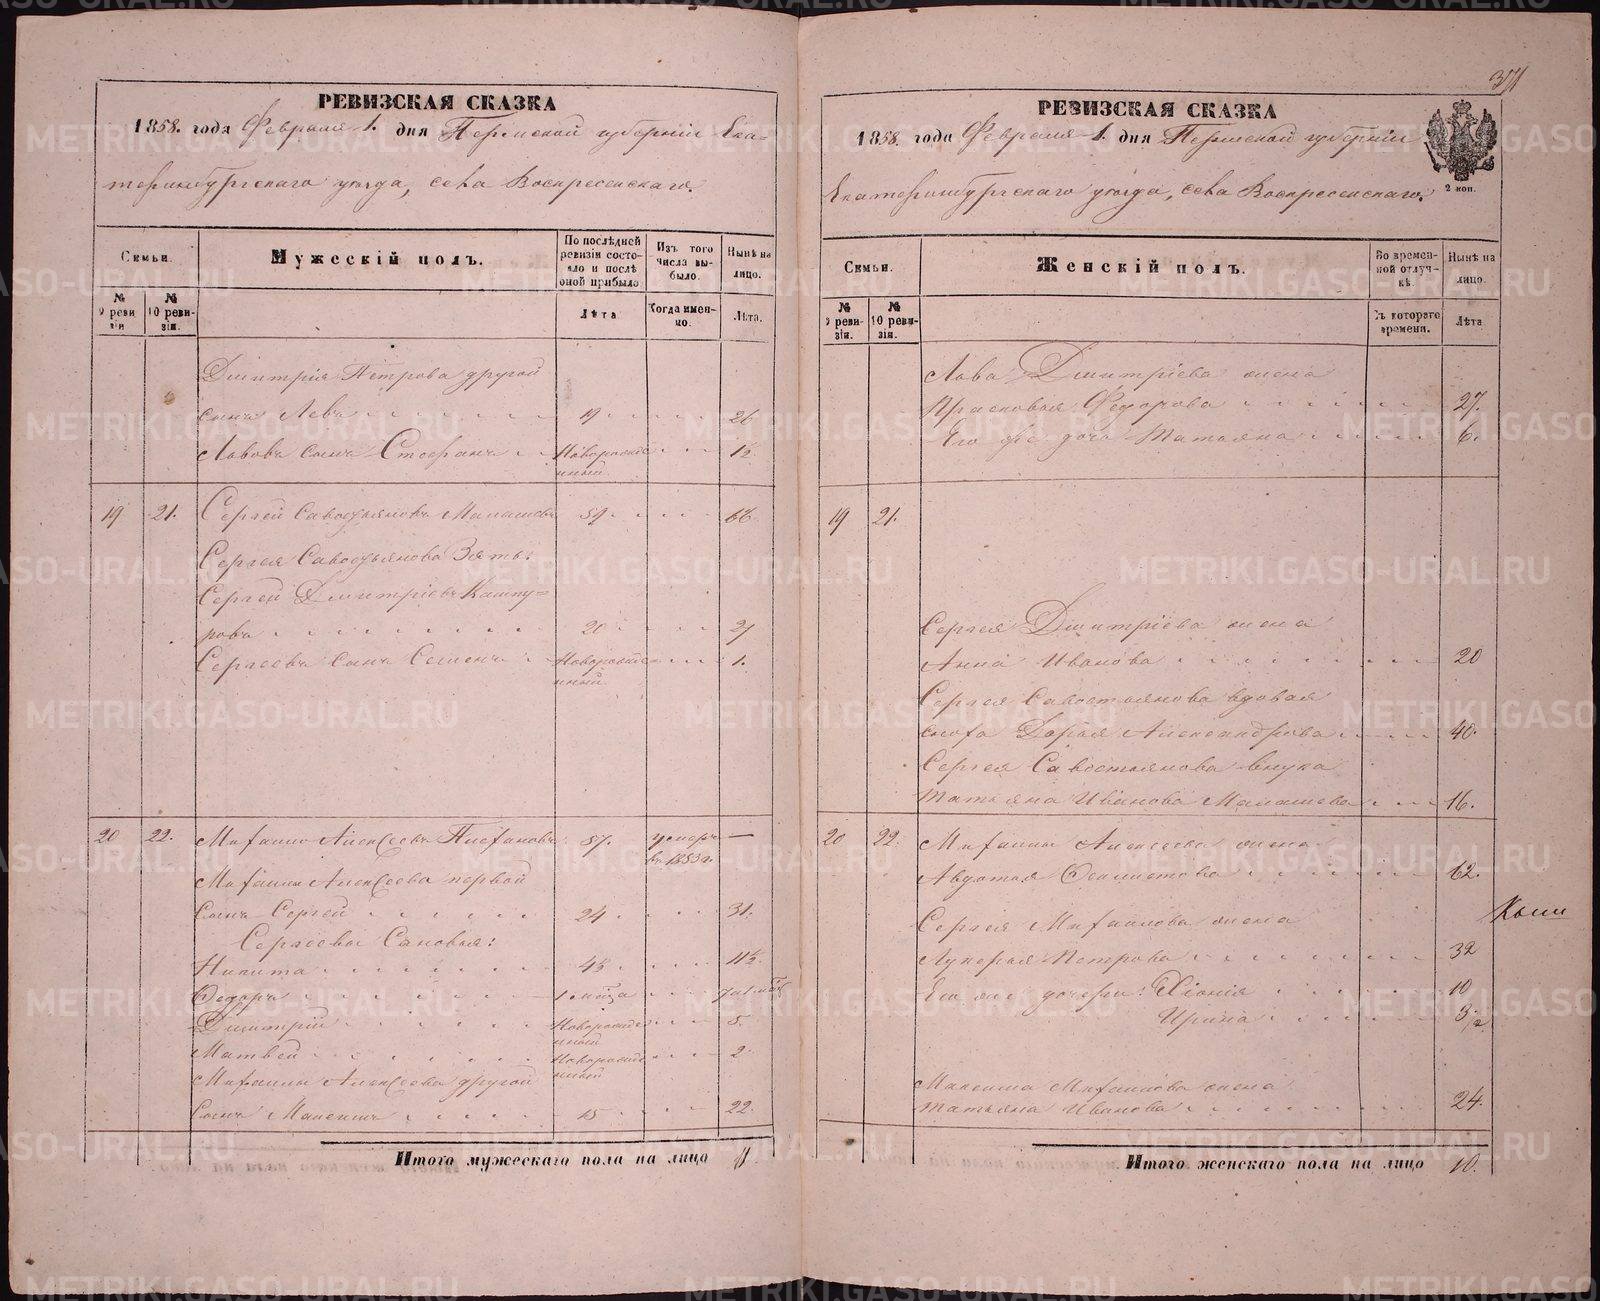 РЕВИЗСКАЯ СКАЗКА
1858. года Февраля 1. дня Пермской губернiи Ека-
теринбургскаго уѣзда, села Воскресенскаго.
Семьи.
Мужескiй полъ.
По послѣдней ревизiи состояло и послѣ оной прибыло
Изъ того числа выбыло.
Нынѣ на лицо.
№ 9 ревизiи
№ 10 ревизiи.
Лѣта
Когда именно.
Лѣта.
Дмитрiя Петрова другой
сынъ Левъ 19 26
Львовъ сынъ Стефанъ Новорожденный 1½
19 21. Сергей Савостьяновъ Малашевъ 59 66
Сергея Савостьянова Зять:
Сергей Дмитрiевъ Кашпу=
ровъ 20 27
Сергеевъ сынъ Семенъ Новорожденный 1.
20 22. Михайло Алексѣевъ 57. умеръ въ 1853 г. —
Михайлы Алексѣева первой
сынъ Сергей 24 31.
Сергѣевы Сыновья:
Никита 4½ 11½
Федоръ 1 мѣсяца
Дмитрiй Новорожденный 5.
Матвей Новорожденный 2
Михайлы Алексѣева другой
сынъ Максимъ 15 22
Итого мужескаго пола на лицо 11.
371
РЕВИЗСКАЯ СКАЗКА
1858. года Февраля 1. дня Пермской губернiи
Екатеринбургскаго уѣзда, села Воскресенскаго.
2 коп.
Семьи.
Женскiй полъ.
Во временной отлучкѣ.
Нынѣ на лицо.
№ 9 ревизiи.
№ 10 ревизiи.
Съ котораго времени.
Лѣта
Льва Дмитрiева жена
Прасковья Федорова 27.
Его же дочь Татьяна 6.
19 21.
Сергея Дмитрiева жена
Анна Иванова 20
Сергея Савостьянова вдовая
сноха Дарья Александрова 40.
Сергея Савостьянова внука
Татьяна Иванова Малашева 16.
20 22. Михайлы Алексеева жена
Авдотья 62.
Сергея Михайлова жена
Лукерья Петрова 32
Его же дочери: Хiонiя 10
Ирина 3/2
Максима Михайлова жена
Татьяна Иванова 24.
Итого женскаго пола на лицо 10.
METRIKI.GASO-URAL.RU